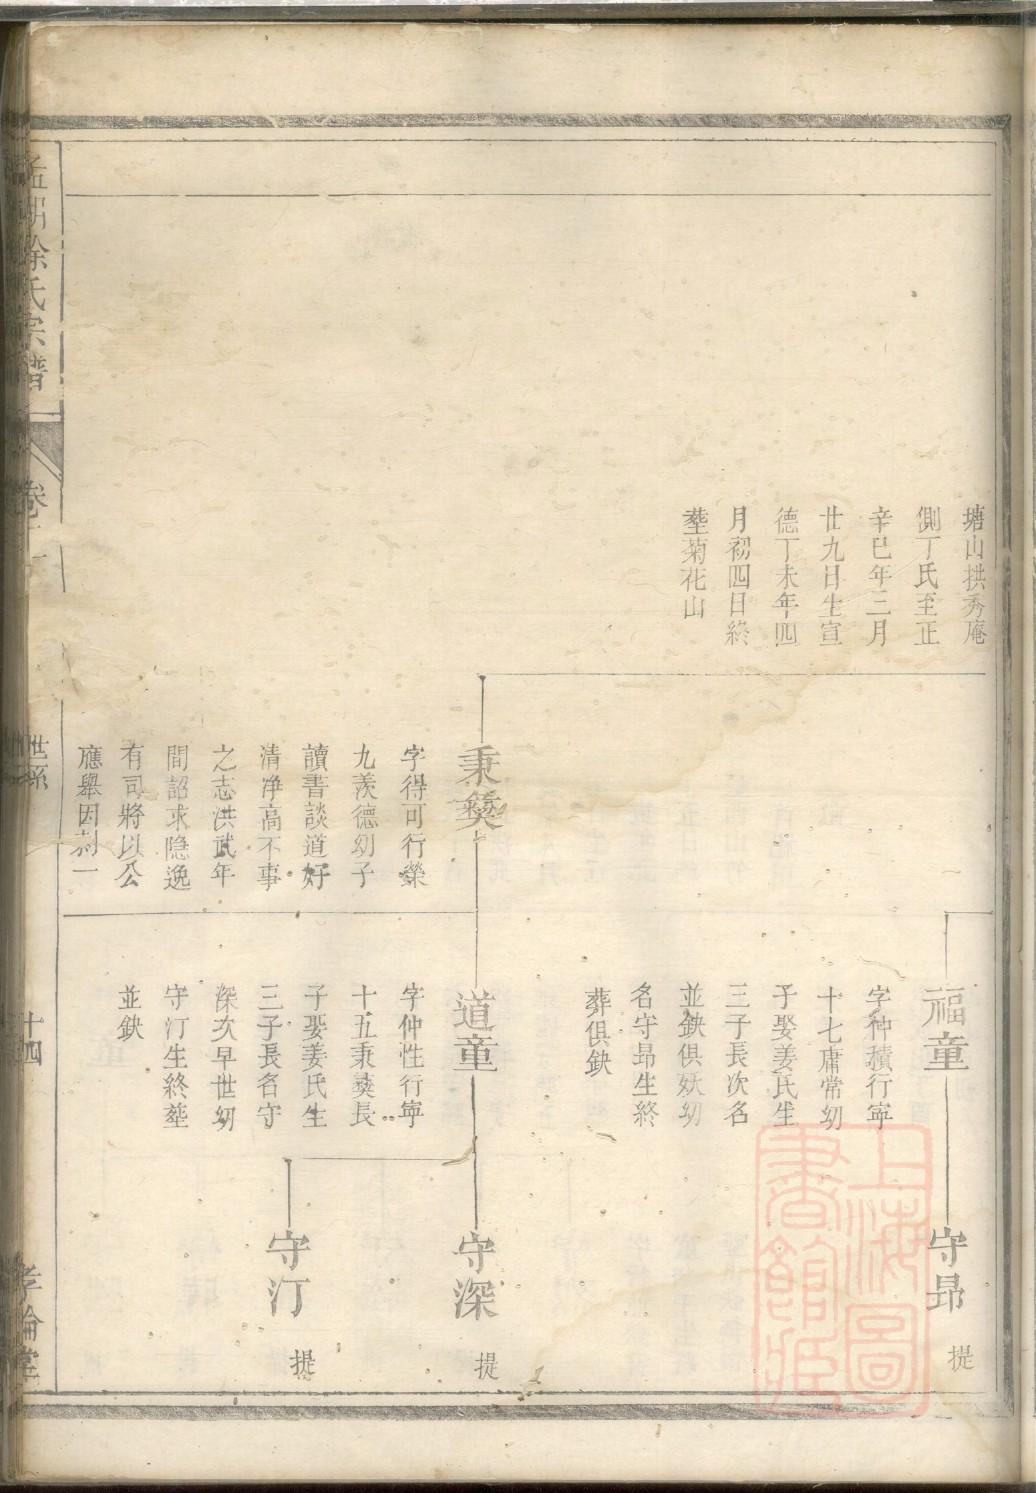 塘山拱秀庵
側丁氏至正
辛巳年三月
廿九日生宣
德丁未年四
月初四日終
塟菊花山
秉彜
字得可行榮
九羨德幼子
讀書談道好
清净高不事
之志洪武年
間詔求隐逸
有司將以公
應舉因刺一
福童
字仲積行寕
十七庸常幼
子娶姜氏生
三子長次名
並缺俱妖幼
名守昻生終
葬俱缺
道童
字仲性行寕
十五秉彜長
子娶姜氏生
三子長名守
深次早世幼
守汀生終塟
並缺
守昻
提
守深
提
守汀
提
徐氏宗譜
卷
世系
十四
孝倫堂
上海圖書館藏